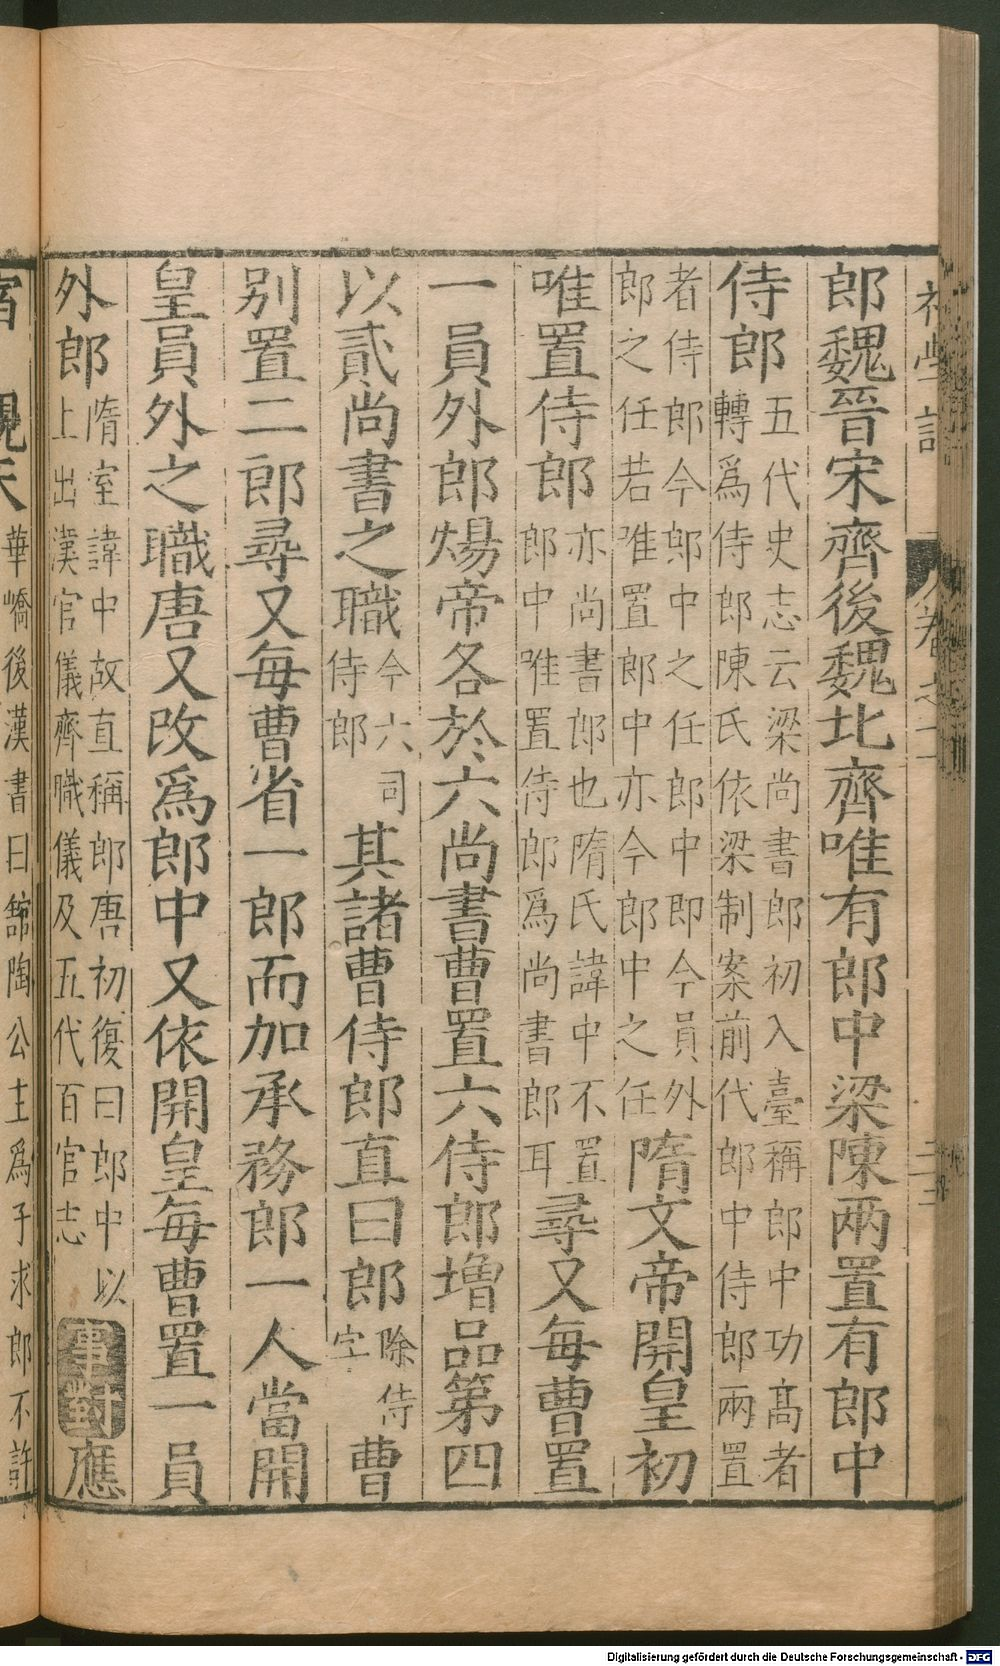 初學記
卷之十
郎魏晉宋齊後魏北齊唯有郎中梁陳兩置有郎中
侍郎五代史志云梁尚書郎初入臺稱郎中功高者
轉爲侍郎陳氏依梁制案前代郎中侍郎兩置
者侍郎今郎中之任郎中即今員外
郎之任若唯置郎中亦今郎中之任隋文帝開皇初
唯置侍郎亦尚書郎也隋氏諱中不置
郎中唯置侍郎爲尚書郎耳尋又每曹置
一員外郎煬帝各於六尚書曹置六侍郎增品第四
以貳尚書之職今六司
侍郎其諸曹侍郎直曰郎除侍
字曹
別置二郎尋又每曹省一郎而加承務郎一人當開
皇員外之職唐又改爲郎中又依開皇每曹置一員
外郎隋室諱中故直稱郎唐初復曰郎中以
上出漢官儀齊職儀及五代百官志事對應
宿觀天華嶠後漢書曰館陶公主爲子求郎不許
Digitalisierung gefördert durch die Deutsche Forschungsgemeinschaft - DFG